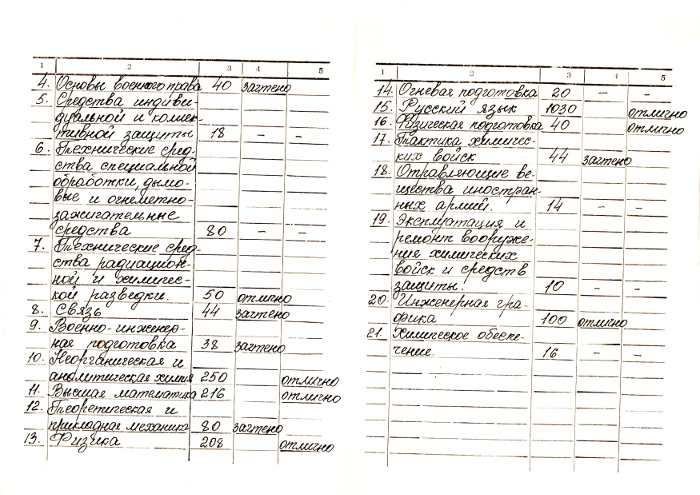 1 2 3 4 5
4. Основы военного права 40 зачтено
5. Средства индиви-
дуальной и коллек-
тивной защиты 18 – –
6. Технические сред-
ства специальной
обработки, дымо-
вые и огнеметно-
зажигательные
средства 80 – –
7. Технические сред-
ства радиацион-
ной и химичес-
кой разведки. 50 отлично
8. Связь 44 зачтено
9. Военно-инженер-
ная подготовка 38 зачтено
10. Неорганическая и
аналитическая химия 250 отлично
11. Высшая математика 216 отлично
12. Теоретическая и
прикладная механика 80 зачтено
13. Физика 208 отлично
1 2 3 4 5
14. Огневая подготовка 20 – –
15. Русский язык 1030 отлично
16. Физическая подготовка 40 отлично
17. Тактика химичес-
ких войск 44 зачтено
18. Отравляющие ве-
щества иностран-
ных армий. 14 – –
19. Эксплуатация и
ремонт вооруже-
ния химических
войск и средств
защиты. 10 – –
20. Инженерная гра-
фика 100 отлично
21. Химическое обеспе-
чение. 16 – –